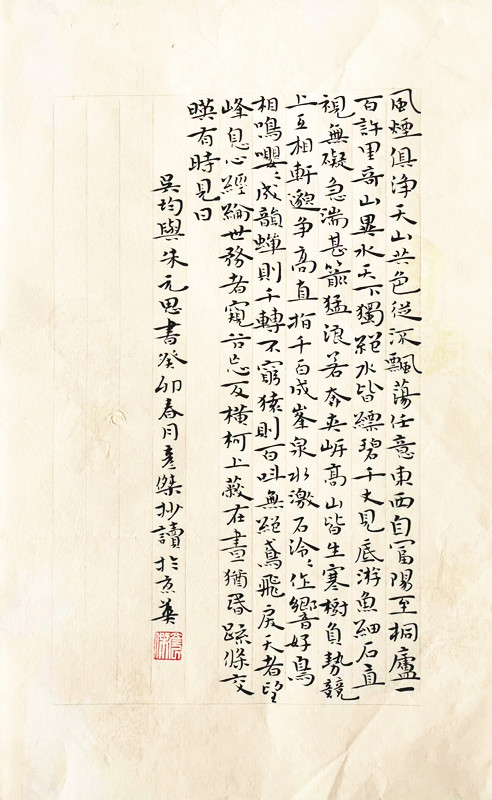 風煙俱淨天山共色從流飄蕩任意東西自富陽至桐廬一
百許里奇山異水天下獨絕水皆縹碧千丈見底游魚細石直
視無礙急湍甚箭猛浪若奔夾岸高山皆生寒樹負勢競
上互相軒邈爭高直指千百成峯泉水激石泠〻作響好鳥
相鳴嚶〻成韻蟬則千轉不窮猿則百叫無絕鳶飛戾天者望
峰息心經綸世務者窺谷忘反橫柯上蔽在晝猶昏踈條交
暎有時見日
吳均與朱元思書癸卯春月彥傑抄讀於京華